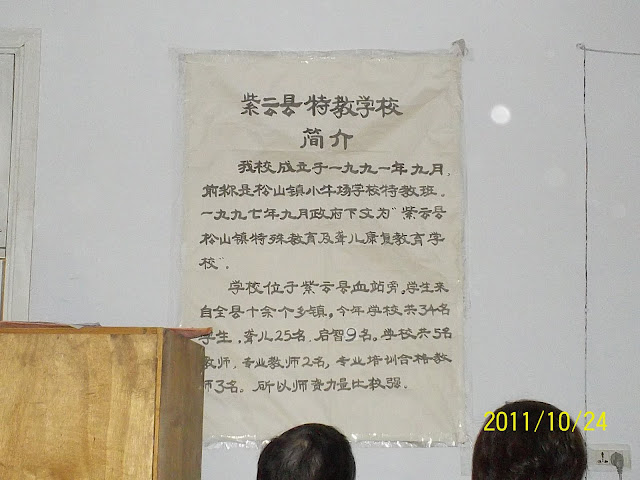 紫云县特教学校
简介
我校成立于一九九一年九月,
前称是松山镇小牛场学校特教班。
一九九七年九月政府下文为"紫云县
松山镇特殊教育及聋儿康复教育学
校"。
学校位于紫云县血站旁。学生来
自全县十余个乡镇。今年学校共34名
学生,聋儿25名,启智9名。学校共5名
教师,专业教师2名,专业培训合格教
师3名。所以师资力量比较强。
2011/10/24